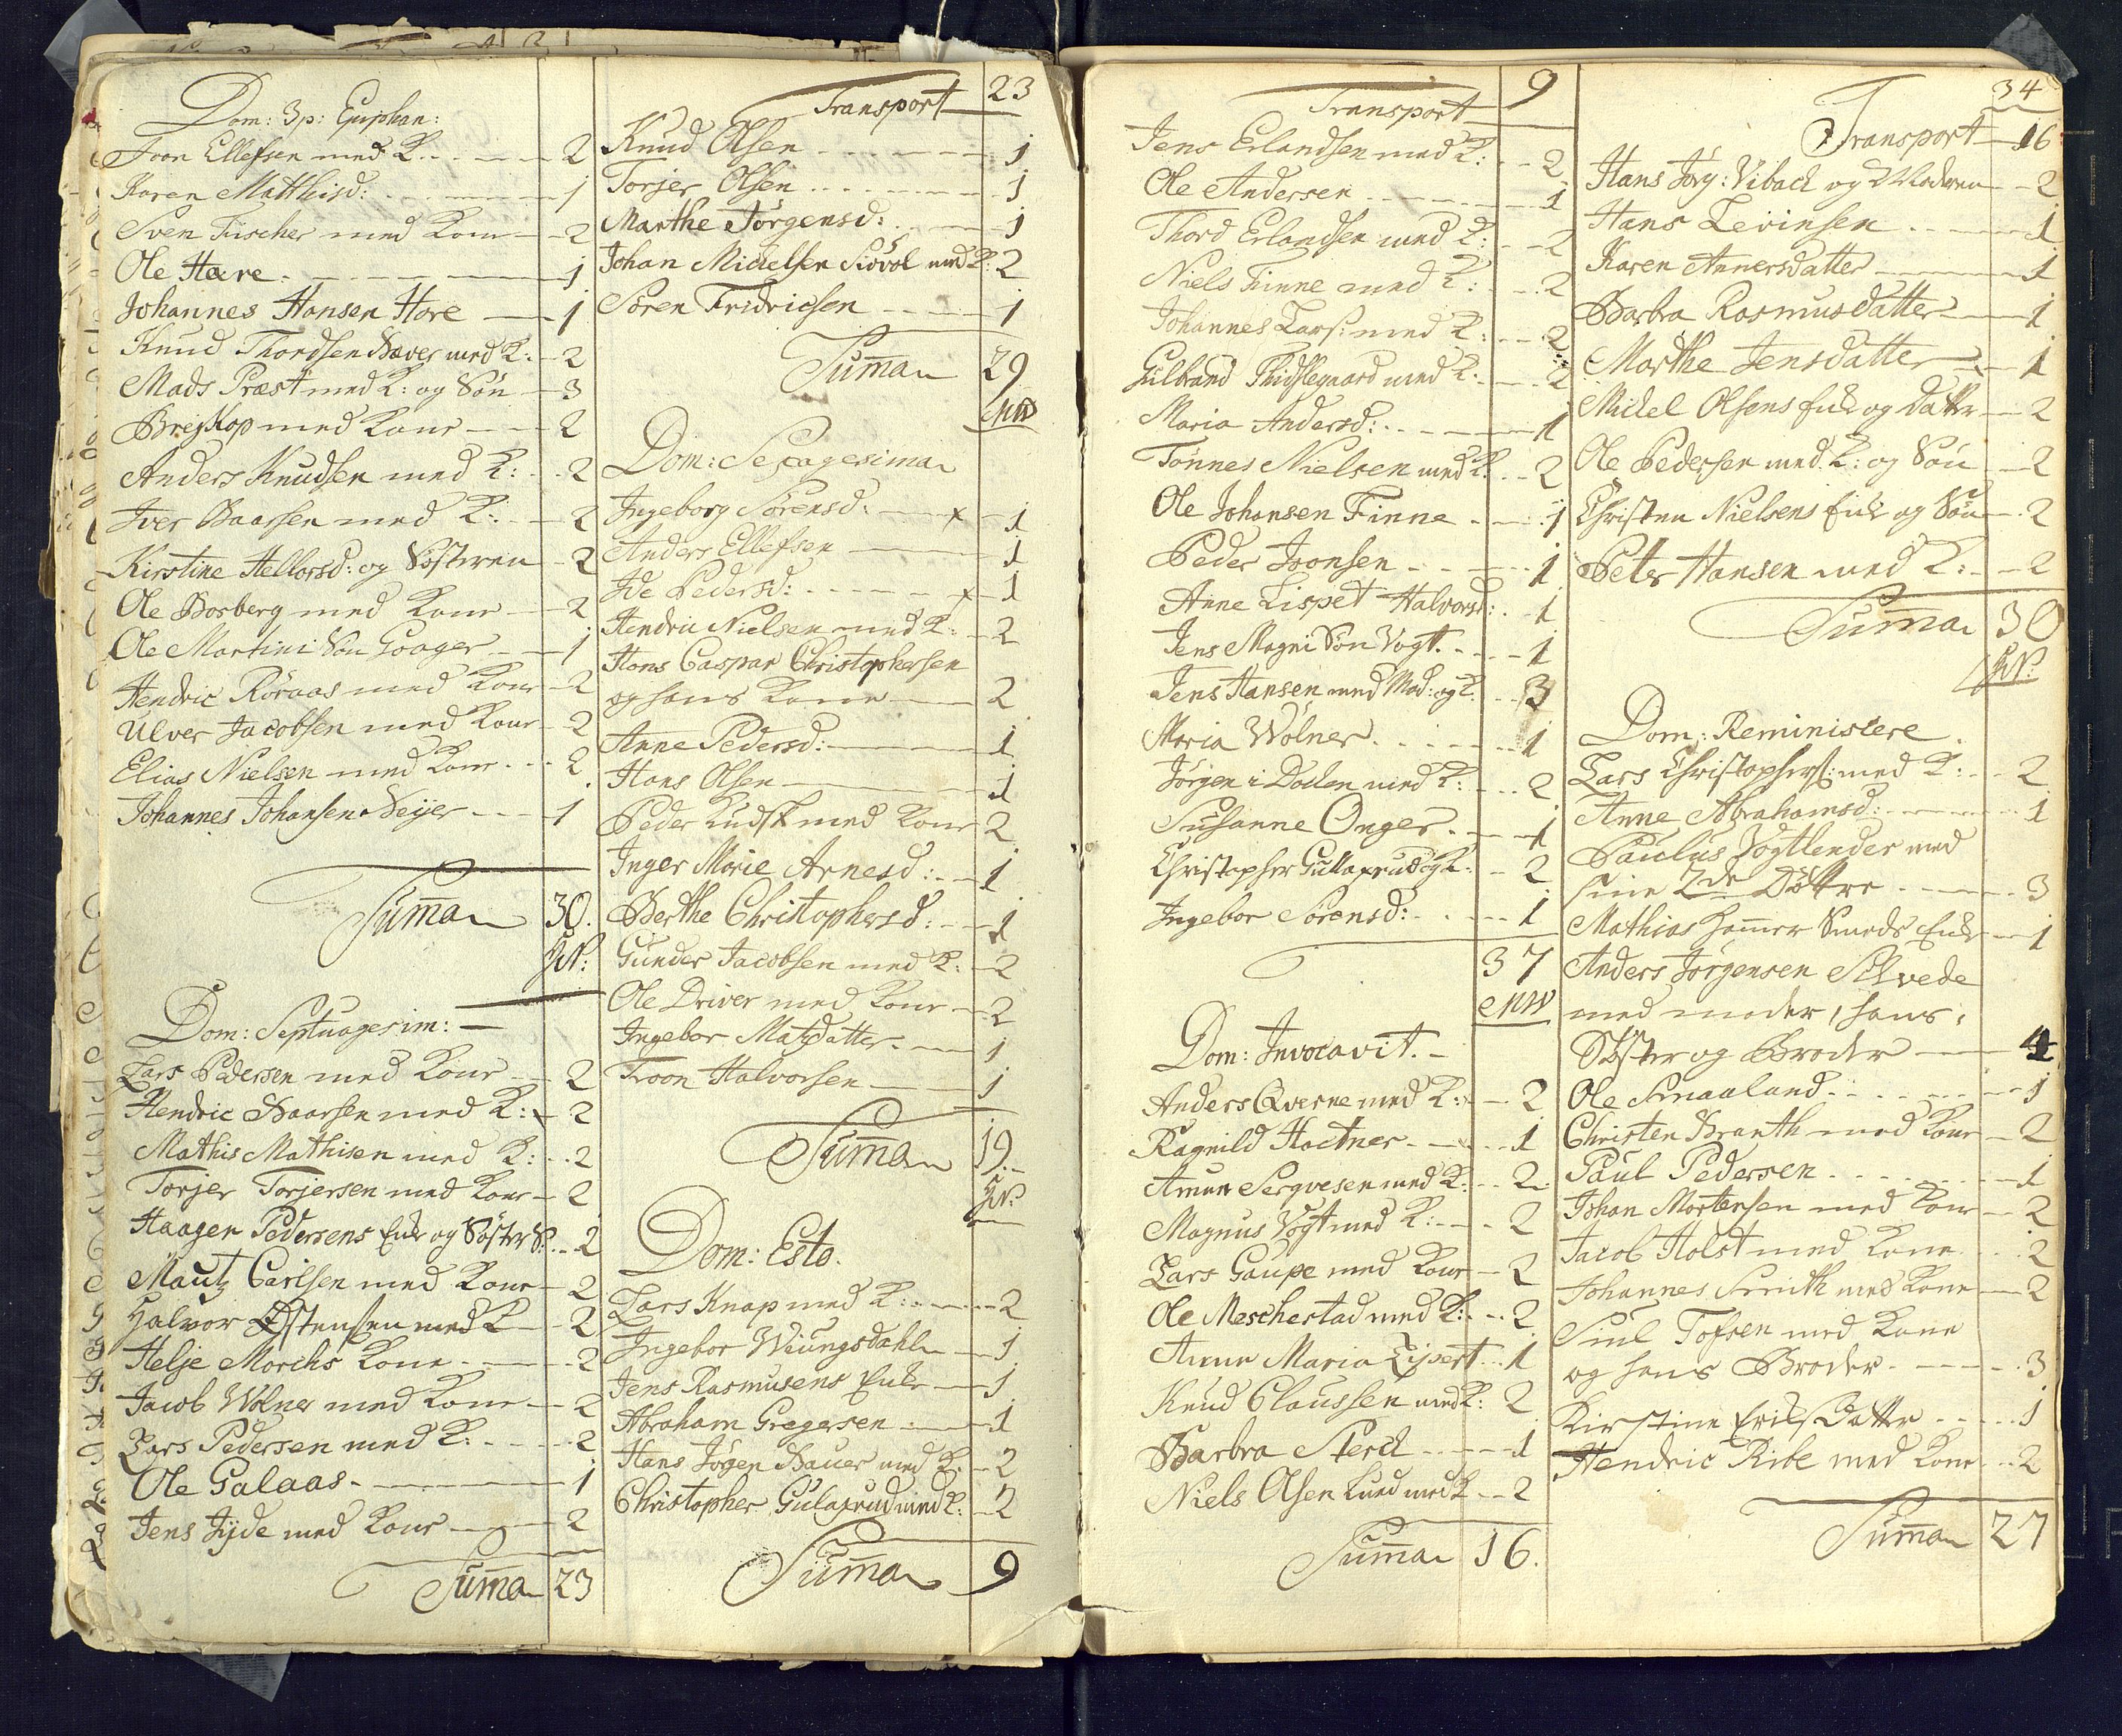 Dom: 3 p: Epiphan:
Joen Ellefsen med K. 2
Karen Matthisd: 1
Sven Fischer med Kone 2
Ole Hare 1
Johannes Hansen Hore 1
Knud Thordsen Væver med K: 2
Mads Præst med K: og Søn 3
Brejskop med Kone 2
Anders Knudsen med K: 2
Iver Baarsen med K: 2
Kirstine Hellorsd: og Søsteren 2
Ole Borberg med Kone 2
Ole Martini Søn Goager 1
Hendric Röraas med Kone 2
Ulver Jacobsen med Kone 2
Elias Nielsen med Kone 2
Johannes Johansen Veijer 1
Suma 30.
Dom: Septuagesim:
Lars Pedersen med Kone 2
Hendric Baarsen med K: 2
Mathis Mathisen med K: 2
Torjer Torjersen med Kone 2
Haagen Pedersens Enke og Søster S: 2
Mautz Carlsen med Kone 2
Halvor Østensen med K 2
Helje Morchs Kone 2
Jacob Wolner med Kone 2
Lars Pedersen med K. 2
Ole Galaas 1
Jens Jyde med Kone 2
Suma 23
Transport 23
Knud Olsen 1
Torjer Olsen 1
Marthe Jörgensd: 1
Johan Michelsen Siövol med K: 2
Sören Fridricsen 1
Suma 29
MW
Dom: Sexagesima
Ingeborg Sörensd: x 1
Anders Ellefsen 1
Ide Pedersd: x 1
Hendric Nielsen med K: 2
Hans Caspar Christophersen
og hans Kone 2
Anne Pedersd: 1
Hans Olsen 1
Peder Kudsk med Kone 2
Inger Marie Arnesd: 1
Berthe Christophersd: 1
Gunder Jacobsen med K: 2
Ole Driver med Kone 2
Ingebor Matzdatter 1
Troen Halvorsen 1
Suma 19.
Dom: Esto.
Lars Knap med K: 2
Ingebor Wiungsdahl 1
Jens Rasmusens Enke 1
Abraham Gregersen 1
Hans Jögen Bauer med K. 2
Christopher Gulaxrud med K: 2
Suma 9
Transport 9
Jens Erlandsen med K: 2
Ole Andersen 1
Thord Erlandsen med K: 2
Niels Finne med K: 2
Johannes Lars: med K: 2
Gulbrand Thidslegaard med K: 2
Maria Andersd: 1
Tönnes Nielsen med K: 2
Ole Johansen Finne 1
Peder Joensen 1
Anne Lispet Halvorsd: 1
Jens Magni Søn Vogt. 1
Jens Hansen med Mod: og K. 3
Maria Wolner 1
Jörgen i Dollen med K: 2
Susanne Onger 1
Christopher Gullaxrud og K: 2
Ingebor Sörensd: 1
37
MW
Dom: Invocavit.
Anders Qverne med K: 2
Ragnild Hoctner 1
Amun Sergvesen med K: 2
Magnus Vogt med K: 2
Lars Gaupe med Kone 2
Ole Meschestad med K: 2
Anne Maria Lipert 1
Knud Claussen med K: 2
Barbra Sterck 1
Niels Olsen Lund med K 2
Suma 16.
34
Transport 16
Hans Jörg: Viback og Moderen 2
Hans Levinsen 1
Karen Annersdatter 1
Barbra Rasmusdatter 1
Marthe Jensdatter 1
Michel Olsens Enke og Datter 2
Ole Pedersen med K: og Søn 2
Christen Nielsens Enke og Søn 2
Peter Hansen med K: 2
Suma 30
Dom: Reminiscere.
Lars Christophers: med K: 2
Anne Abrahamsd: 1
Paulus Vogtlender med
sine 2de Döttre 3
Mathias Hamer Smeds Enke 1
Anders Jörgensen Schvede
med moder, hans
Søster og Broder 4
Ole Smaaland 1
Christen Branth med Kone 2
Paul Pedersen 1
Johan Mortensen med Kone 2
Jacob Holst med Kone 2
Johannes Smith med Kone 2
Siul Tofsen med Kone
og hans Broder 3
Kirstine Eriks Datter 1
Hendric Ribe med Kone 2
Suma 27